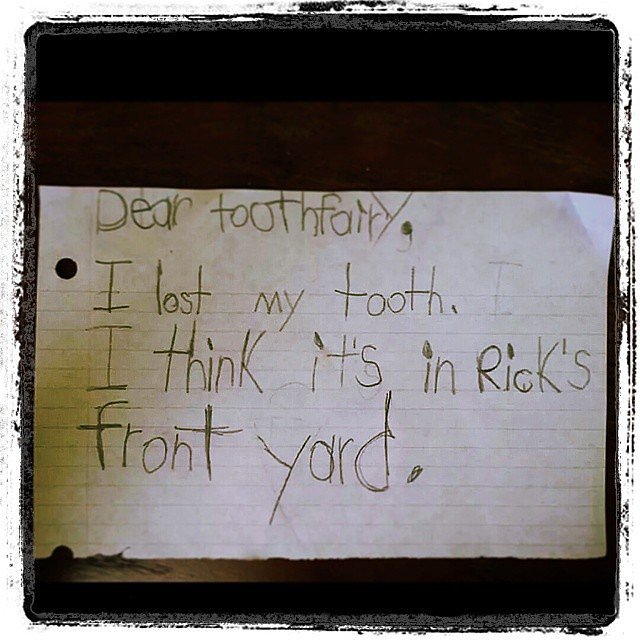 Dear toothfairy,
I lost my tooth. I
I think it's in Rick's
front yard.